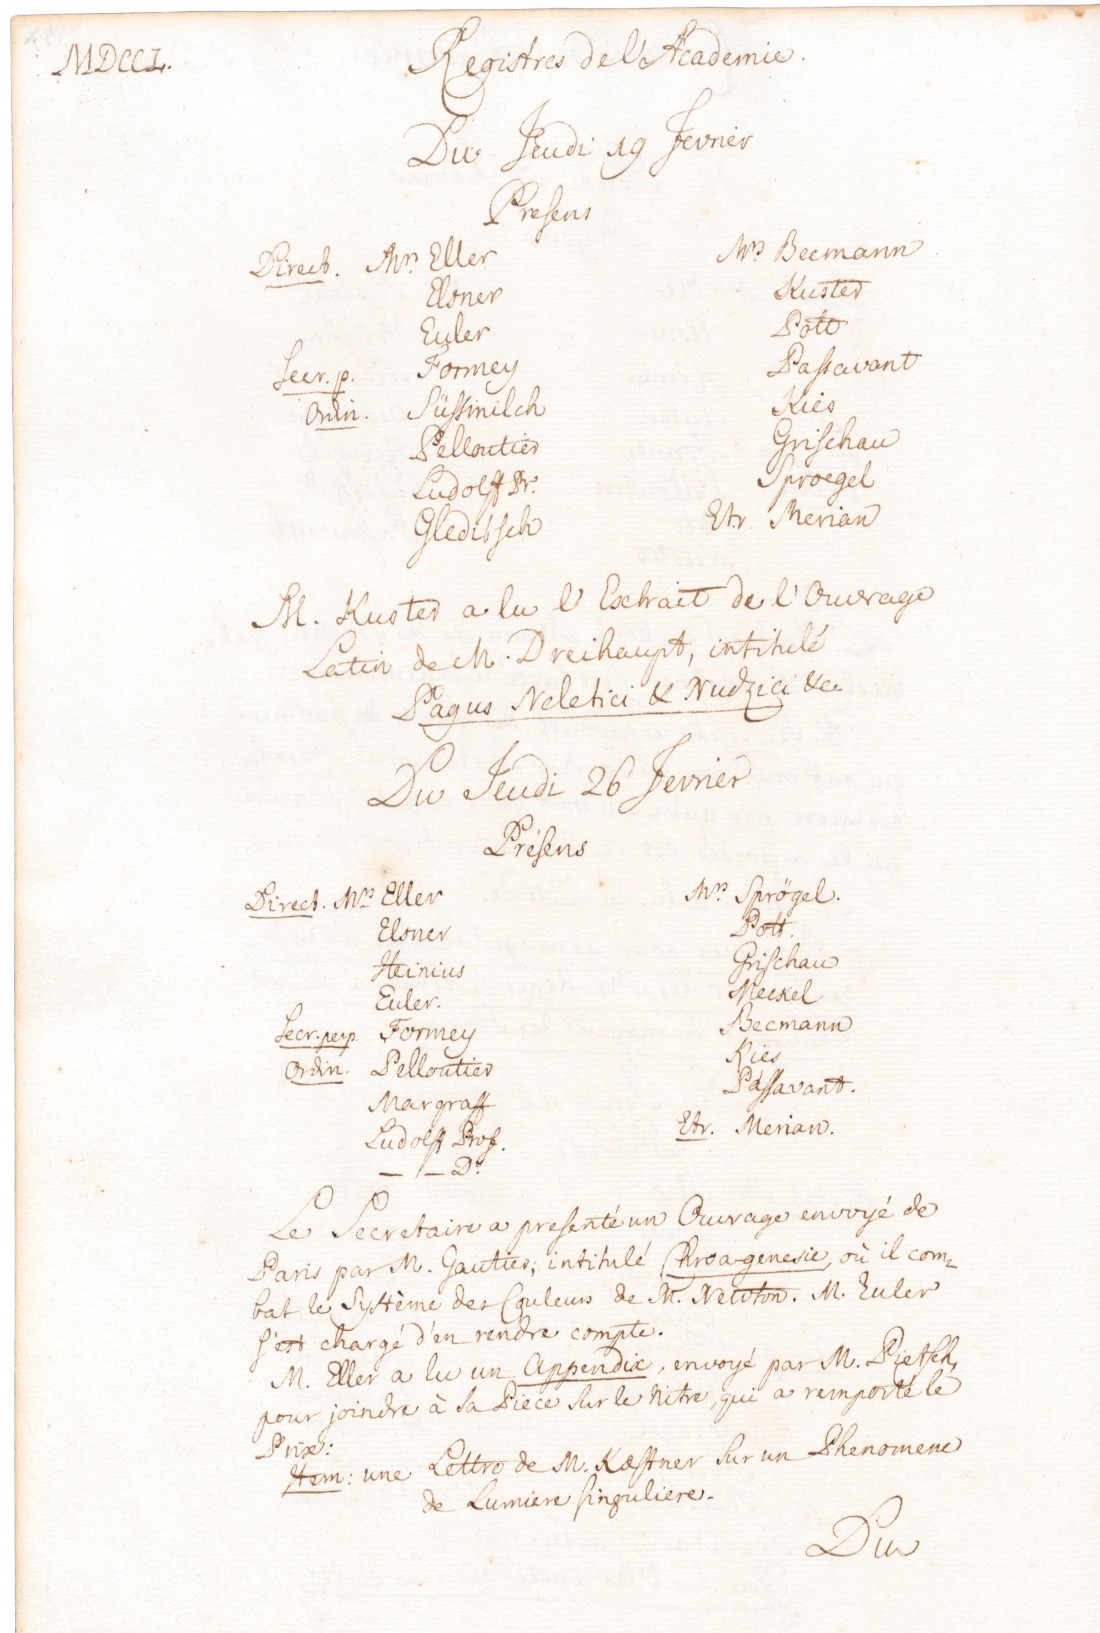 MDCCL.
Registres de l'Academie.
Du Jeudi 19 Fevrier
Presens
Direct. Mrs Eller
Elsner
Euler
Secr. p. Formey
Ordin. Süssmilch
Pelloutier
Ludolff Pr.
Gleditsch
Mrs Becmann
Kuster
Pott
Passavant
Kies
Grischau
Sproegel
Etr. Merian
M. Kuster a lu l'Extrait de l'Ouvrage
Latin de M. Dreihaupt, intitulé
Pagus Neletici & Nudzici &c.
Du Jeudi 26 Fevrier
Présens
Direct. Mrs Eller
Elsner
Heinius
Euler.
Secr. perp. Formey
Ordin. Pelloutier
Margraff
Ludolff Prof.
— — Dr.
Mrs Sprögel.
Pott.
Grischau
Meckel
Becmann
Kies
Passavant.
Etr. Merian.
Le Secretaire a presenté un Ouvrage envoyé de
Paris par M. Gautier, intitulé Chroa-genesie, où il com-
bat le Système des Couleurs de M. Newton. M. Euler
s'est chargé d'en rendre compte.
M. Eller a lu un Appendix, envoyé par M. Pietsch,
pour joindre à sa Piece sur le Nitre, qui a remporté le
Prix:
Item: une Lettre de M. Kæstner sur un Phenomene
de Lumiere singuliere.
Du